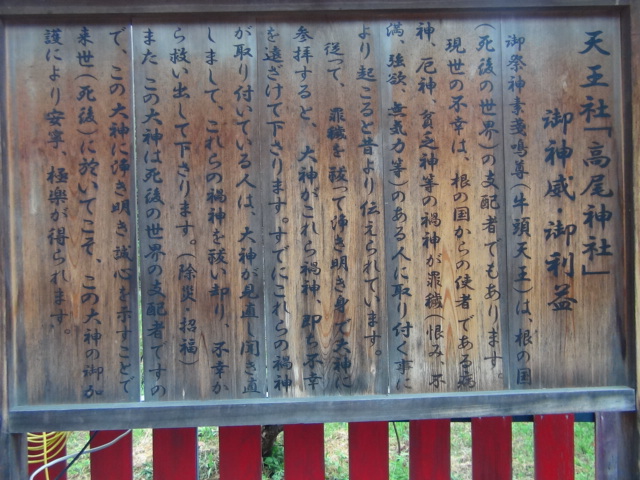 天王社「高尾神社」
御神威・御利益
御祭神素戔嗚尊(牛頭天王)は、根の国
(死後の世界)の支配者でもあります。
現世の不幸は、根の国からの使者である疫
神、厄神、貧乏神等の禍神が罪穢(恨み、不
満、強欲、無気力等)のある人に取り付く事に
より起こると昔より伝えられています。
従って、罪穢を祓って清き明き身で大神に
参拝すると、大神がこれら禍神、即ち不幸
を遠ざけて下さります。すでにこれらの禍神
が取り付いている人は、大神が見直し聞き直
しまして、これらの禍神を祓い却り、不幸か
ら救い出して下さります。(除災・招福)
また この大神は死後の世界の支配者ですの
で、この大神に清き明き誠心を示すことで
来世(死後)に於いてこそ、この大神の御加
護により安寧、極楽が得られます。